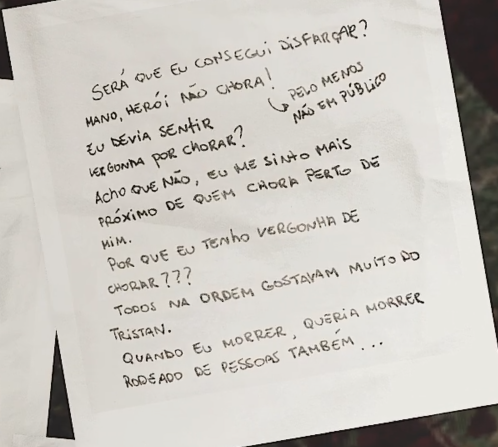 SERÁ QUE EU CONSEGUI DISFARÇAR?
MANO, HERÓI NÃO CHORA!
PELO MENOS
NÃO EM PÚBLICO
EU DEVIA SENTIR
VERGONHA POR CHORAR?
ACHO QUE NÃO, EU ME SINTO MAIS
PRÓXIMO DE QUEM CHORA PERTO DE
MIM.
POR QUE EU TENHO VERGONHA DE
CHORAR???
TODOS NA ORDEM GOSTAVAM MUITO DO
TRISTAN.
QUANDO EU MORRER, QUERIA MORRER
RODEADO DE PESSOAS TAMBÉM...